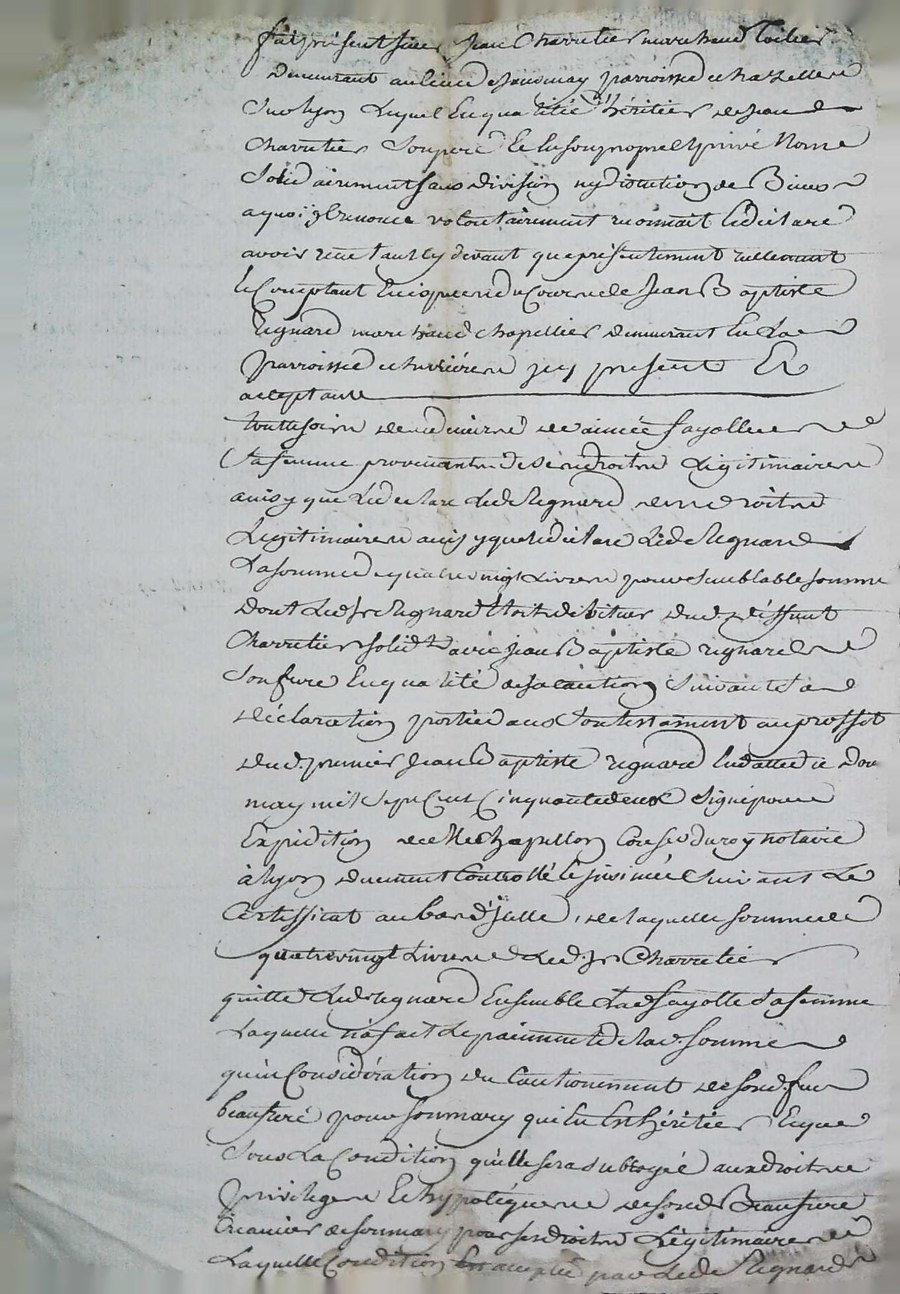 fut présent sieur Jean Charretier marchand toilier
demeurant au lieu de parroisse de chazelle
Sur lyon Lequel En qualité d'héritier de Jean
Charretier Son pere Et En son propre Et privé Nom
Solidairement sans division ny discution de Biens
a quoi il Renonce volontairement reconnait Et déclare
avoir reçu tant cy devant que présentement réellement
Comptant En espece du Cour de Jean Baptiste
Regnard marchand chapellier demeurant En La
parroisse de icy présent Et
acceptant
Toutte foix des deniers de aimée fayolle
Sa femme provenant de Ses droits Légitimaire
ainsy que Le déclare Led Regnard droits
Légitimaire ainsy que le déclare Led Regnard
La somme de quatrevingt Livres pour Semblable somme
Dont Led Sr Regnard Etoit débiteur dud deffunt
Charretier solid.t avec Jean Baptiste regnard
Son frere En qualité de sa caution Suivant La
déclaration portée dans Son testament au proffit
dud. premier Jean Baptiste regnard En datte de Dou
may mil Sept Cent Cinquante deux Signé pour
Expédition de Me Chapellon Conser du roy notaire
à lyon duement Controllé Et insinué Suivant Le
Certifficat au bas d'jcelle, de laquelle somme de
quatrevingt Livres Led. Sr Charretier
quitte Led Regnard Ensemble Lad fayolle Sa femme
Laquelle n'a fait Le paiement de lad. somme
qu'en Considération du Cautionement de sond. feu
beaufrere pour son mary qui En Est héritier Et que
Sous La Condition qu'elle sera subrogée aux droits
Privilege Et hypoteque de sond Beaufrere
de son mary pour ses droits Légitimaire
Laquelle Condition Est acceptée par Led Regnard